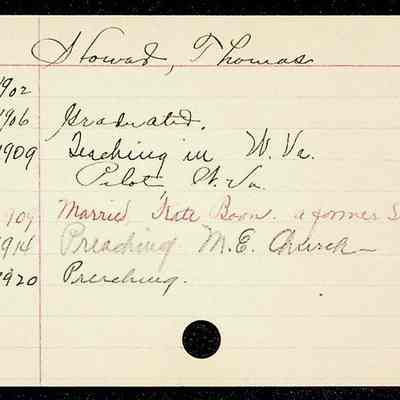 Howard, Thomas
1902
1906 Graduated.
1909 Teaching in W. Va.
Pilot, W. Va.
1909 Married Kate Boon. a former S
1914 Preaching M.E. Church—
1920 Preaching.